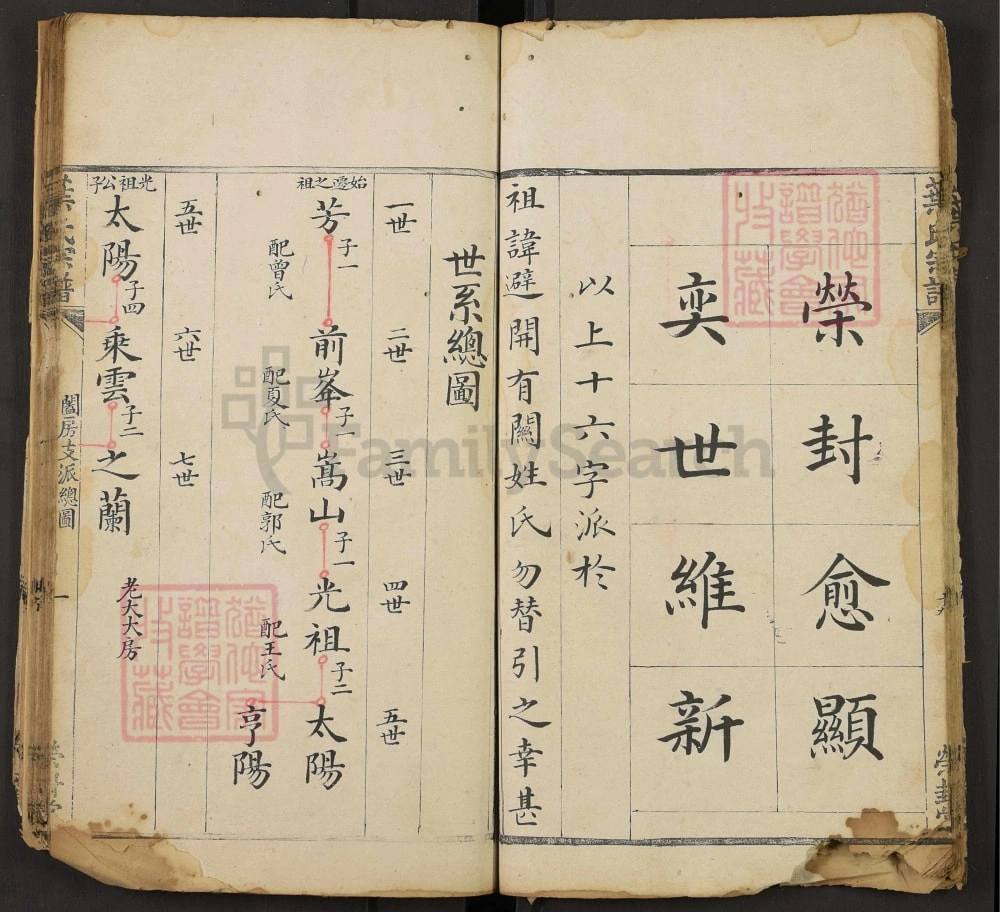 葉氏宗譜
榮封愈顯
奕世維新
以上十六字派於
祖諱避開有關姓氏勿替引之幸甚
世系總圖
一世 二世 三世 四世 五世
始遷之祖
芳 子一 前峯 子一 嵩山 子一 光祖 子二 太陽
亨陽
配曾氏 配夏氏 配郭氏 配王氏
五世 六世 七世
光祖公子
太陽 子四 乘雲 子二 之蘭
老大大房
葉氏宗譜 闔房支派總圖 一
FamilySearch